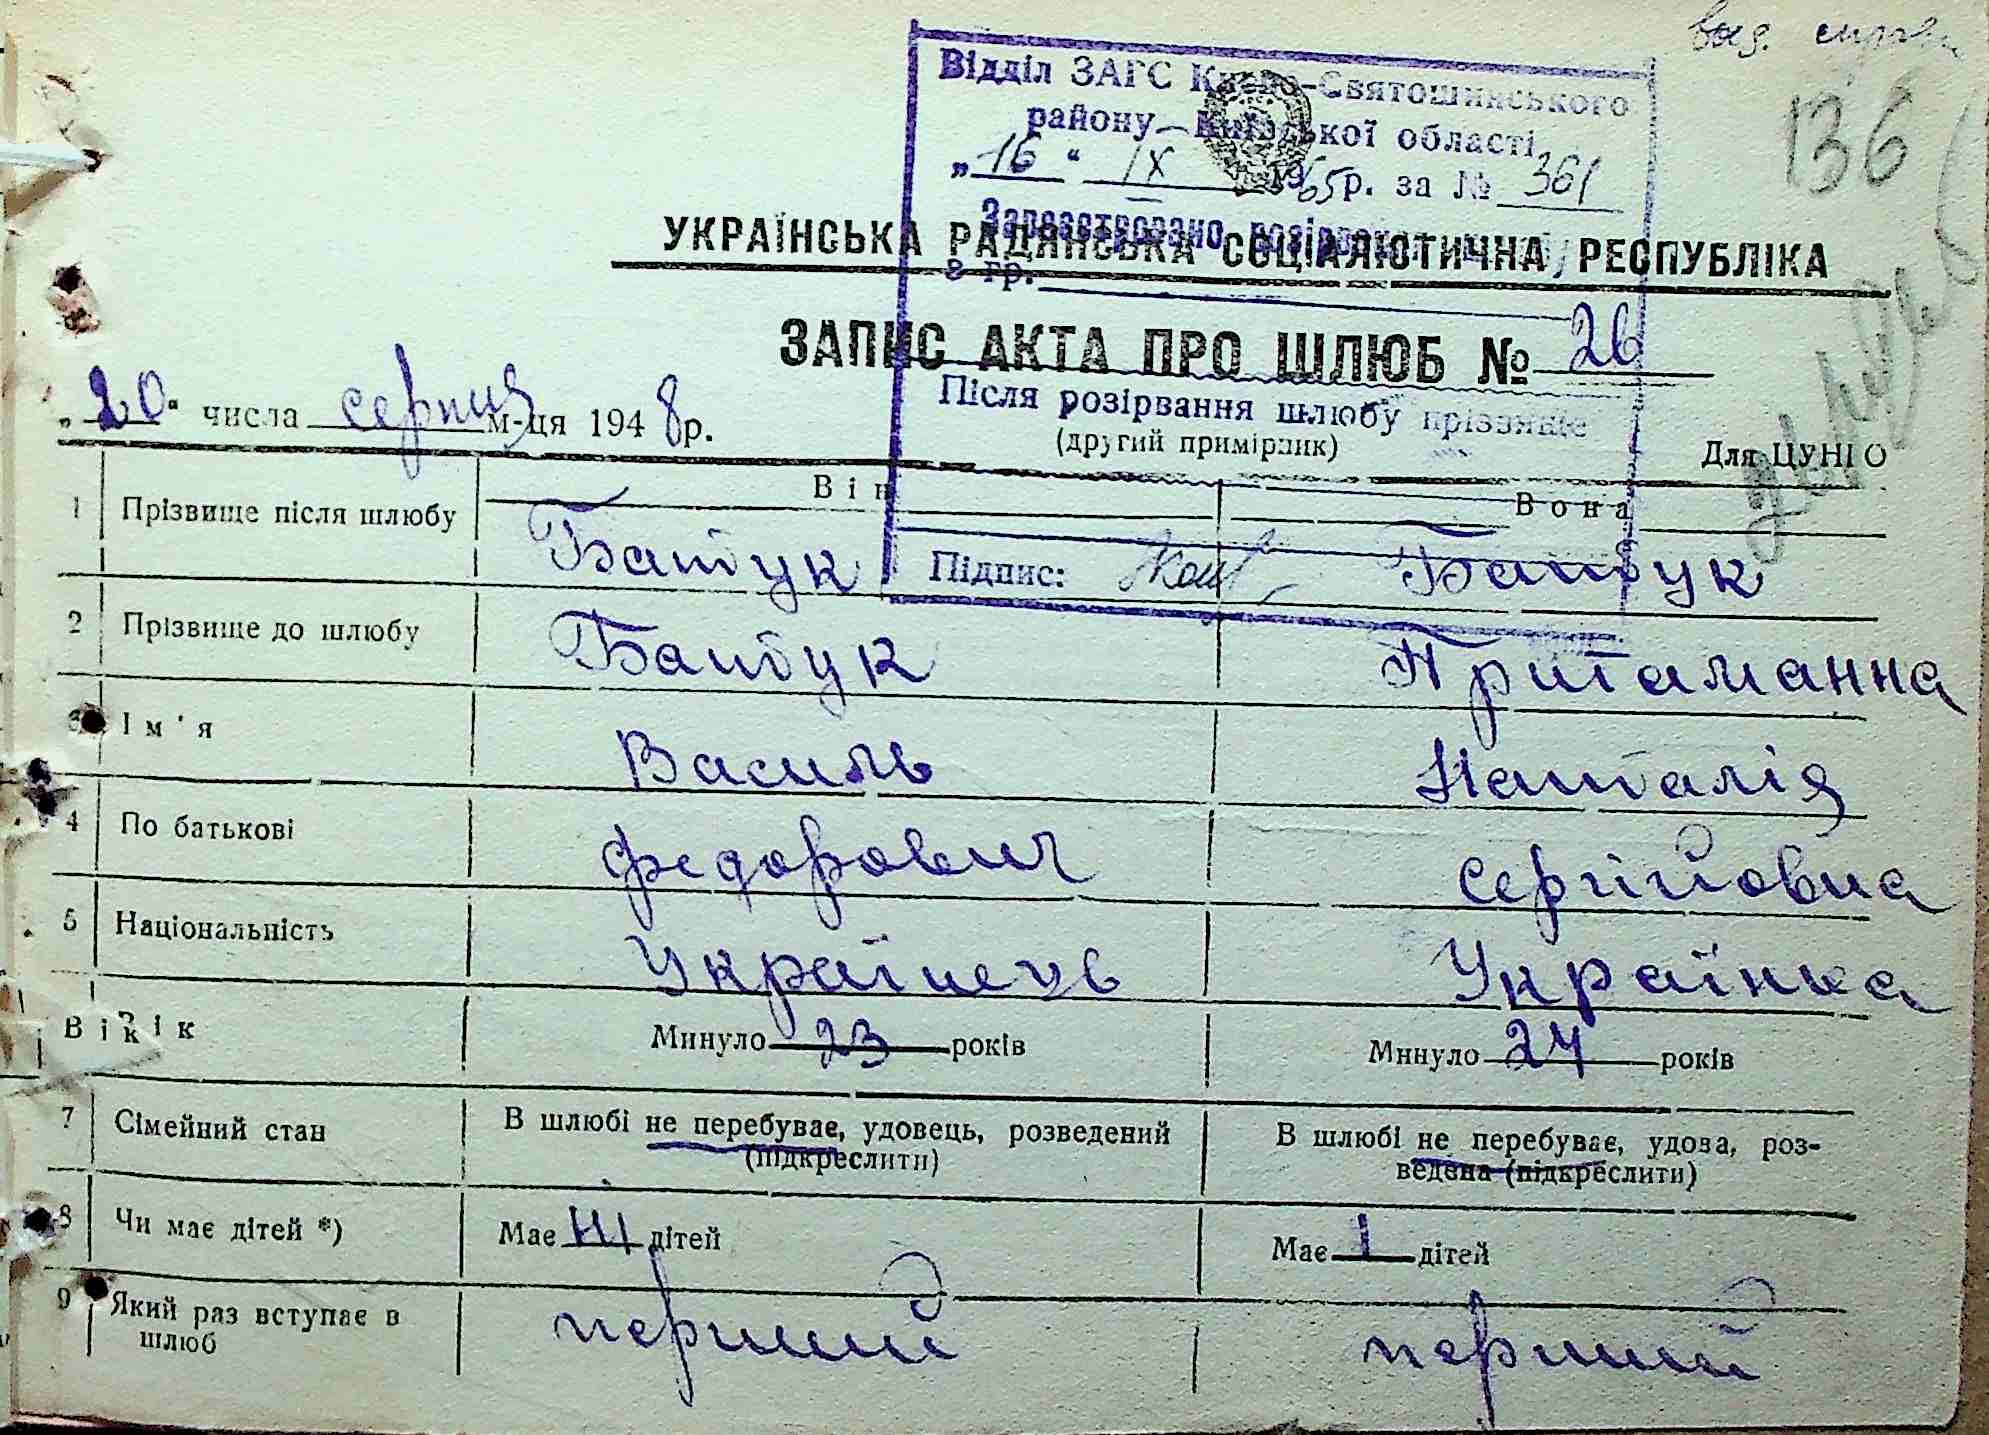 Відділ ЗАГС Києво-Святошинського
району Київської області
„16“ IX 1965р. за № 361
136
Зареєстровано розірвання
з гр.
УКРАЇНСЬКА РАДЯНСЬКА СОЦІАЛІСТИЧНА РЕСПУБЛІКА
ЗАПИС АКТА ПРО ШЛЮБ № 26
Після розірвання шлюбу прізвище
„20“ числа серпня м-ця 1948р.
(другий примірник)
Для ЦУНГО
Він Вона
1 Прізвище після шлюбу Батбук Батбук
Підпис:
2 Прізвище до шлюбу Батбук Притаманна
3 Ім'я Василь Наталія
4 По батькові Федорович Сергійовна
5 Національність Українець Українка
Вік Минуло 23 років Минуло 24 років
7 Сімейний стан В шлюбі не перебуває, удовець, розведений (підкреслити) В шлюбі не перебуває, удова, роз-
ведена (підкреслити)
8 Чи має дітей *) Має дітей Має 1 дітей
9 Який раз вступає в
шлюб перший перший